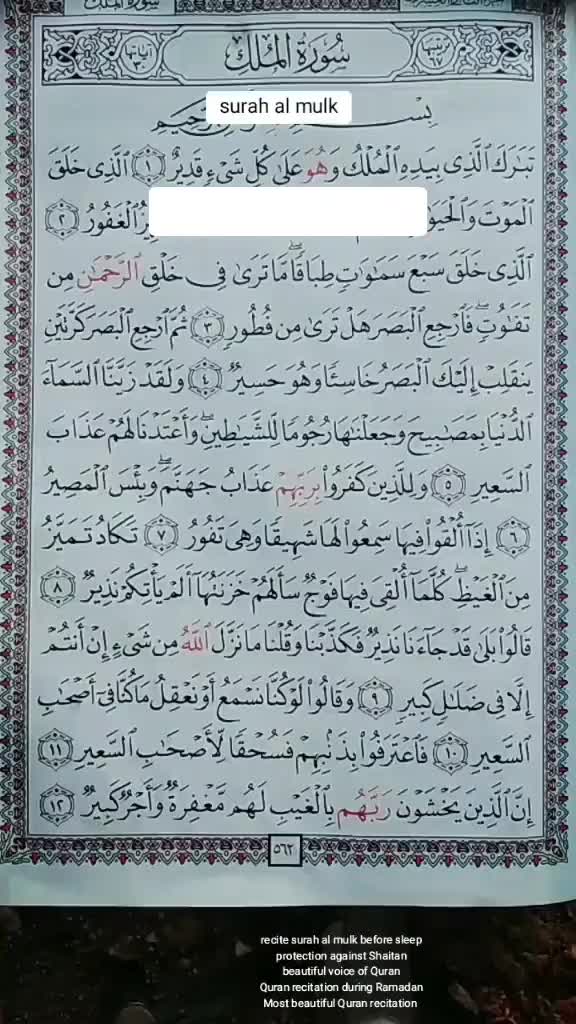 سُورَةُ المُلْكِ
رتيبها ٦٧
آياتها ٣٠
surah al mulk
بِسْ
تَبَٰرَكَ ٱلَّذِى بِيَدِهِ ٱلْمُلْكُ وَهُوَ عَلَىٰ كُلِّ شَىْءٍ قَدِيرٌ ١ ٱلَّذِى خَلَقَ
ٱلْمَوْتَ وَٱلْحَيَوٰ ٱلْغَفُورُ ٢
ٱلَّذِى خَلَقَ سَبْعَ سَمَٰوَٰتٍ طِبَاقًا مَّا تَرَىٰ فِى خَلْقِ ٱلرَّحْمَٰنِ مِن
تَفَٰوُتٍ فَٱرْجِعِ ٱلْبَصَرَ هَلْ تَرَىٰ مِن فُطُورٍ ٣ ثُمَّ ٱرْجِعِ ٱلْبَصَرَ كَرَّتَيْنِ
يَنقَلِبْ إِلَيْكَ ٱلْبَصَرُ خَاسِئًا وَهُوَ حَسِيرٌ ٤ وَلَقَدْ زَيَّنَّا ٱلسَّمَآءَ
ٱلدُّنْيَا بِمَصَٰبِيحَ وَجَعَلْنَٰهَا رُجُومًا لِّلشَّيَٰطِينِ وَأَعْتَدْنَا لَهُمْ عَذَابَ
ٱلسَّعِيرِ ٥ وَلِلَّذِينَ كَفَرُوا۟ بِرَبِّهِمْ عَذَابُ جَهَنَّمَ وَبِئْسَ ٱلْمَصِيرُ
٦ إِذَآ أُلْقُوا۟ فِيهَا سَمِعُوا۟ لَهَا شَهِيقًا وَهِىَ تَفُورُ ٧ تَكَادُ تَمَيَّزُ
مِنَ ٱلْغَيْظِ كُلَّمَآ أُلْقِىَ فِيهَا فَوْجٌ سَأَلَهُمْ خَزَنَتُهَآ أَلَمْ يَأْتِكُمْ نَذِيرٌ ٨
قَالُوا۟ بَلَىٰ قَدْ جَآءَنَا نَذِيرٌ فَكَذَّبْنَا وَقُلْنَا مَا نَزَّلَ ٱللَّهُ مِن شَىْءٍ إِنْ أَنتُمْ
إِلَّا فِى ضَلَٰلٍ كَبِيرٍ ٩ وَقَالُوا۟ لَوْ كُنَّا نَسْمَعُ أَوْ نَعْقِلُ مَا كُنَّا فِىٓ أَصْحَٰبِ
ٱلسَّعِيرِ ١٠ فَٱعْتَرَفُوا۟ بِذَنۢبِهِمْ فَسُحْقًا لِّأَصْحَٰبِ ٱلسَّعِيرِ ١١
إِنَّ ٱلَّذِينَ يَخْشَوْنَ رَبَّهُم بِٱلْغَيْبِ لَهُم مَّغْفِرَةٌ وَأَجْرٌ كَبِيرٌ ١٢
٥٦٢
recite surah al mulk before sleep
protection against Shaitan
beautiful voice of Quran
Quran recitation during Ramadan
Most beautiful Quran recitation